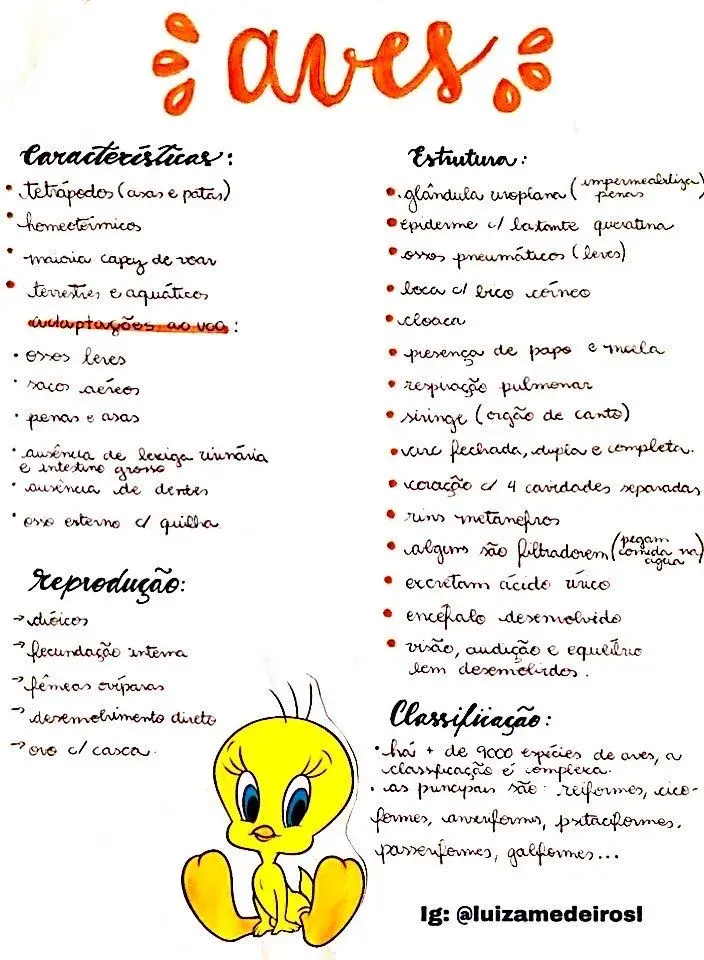 aves
Características:
• tetrápodos (asas e patas)
• homeotérmicos
• maioria capaz de voar
• terrestres e aquáticos
adaptações ao voo:
• ossos leves
• sacos aéreos
• penas e asas
• ausência de bexiga urinária
e intestino grosso
• ausência de dentes
• osso esterno c/ quilha
Reprodução:
→ dióicos
→ fecundação interna
→ fêmeas ovíparas
→ desenvolvimento direto
→ ovo c/ casca.
Estrutura:
• glândula uropiana (impermeabiliza
penas)
• epiderme c/ bastante queratina
• ossos pneumáticos (leves)
• boca c/ bico córneo
• cloaca
• presença de papo e moela
• respiração pulmonar
• siringe (orgão de canto)
• circ fechada, dupla e completa.
• coração c/ 4 cavidades separadas
• rins metanefros
• alguns são filtradorem (pegam
comida na
água)
• excretam ácido úrico
• encéfalo desenvolvido
• visão, audição e equilíbrio
bem desenvolvidos.
Classificação:
• há + de 9000 espécies de aves, a
classificação é complexa.
• as principais são: reiformes, cico-
formes, anseriforms, psitaciformes,
passeriformes, galiformes...
Ig: @luizamedeirosl